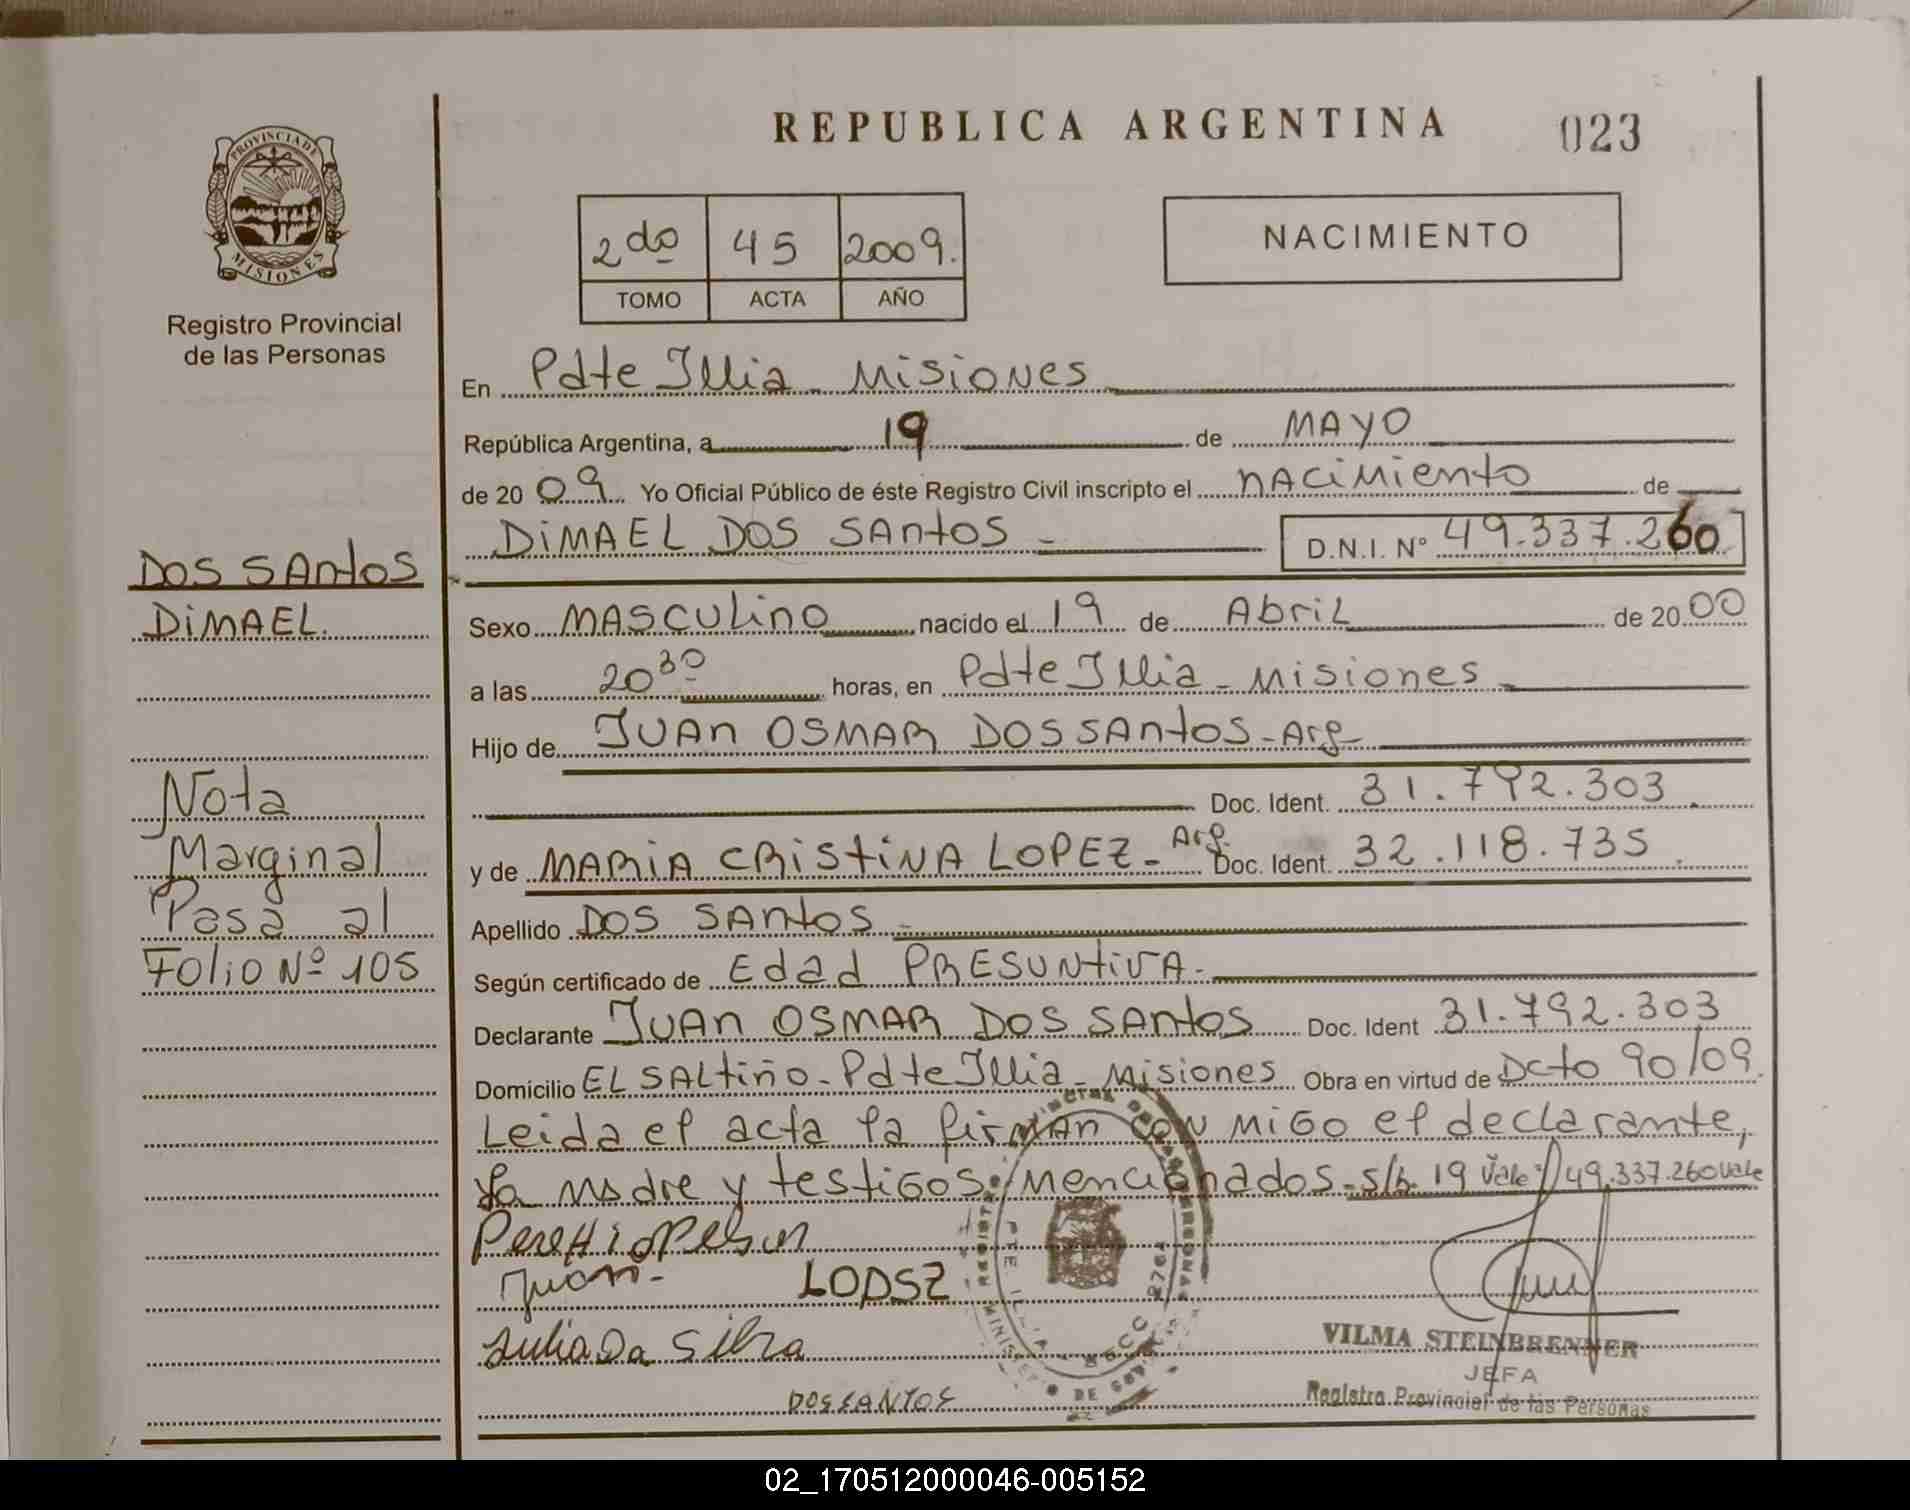 REPUBLICA ARGENTINA
023
PROVINCIA DE
MISIONES
Registro Provincial
de las Personas
2do 45 2009.
TOMO ACTA AÑO
NACIMIENTO
En Pdte Illia - Misiones
República Argentina, a 19 de MAYO
de 2009 Yo Oficial Público de éste Registro Civil inscripto el nacimiento de
DIMAEL DOS SANTOS - D.N.I. Nº 49.337.260
DOS SANTOS
DIMAEL.
Nota
Marginal
Pasa al
Folio Nº 105
Sexo MASCULINO nacido el 19 de Abril de 2000
a las 20 30 horas, en Pdte Illia - Misiones -
Hijo de JUAN OSMAR DOS SANTOS - Arg -
Doc. Ident. 31.792.303
y de MARIA CRISTINA LOPEZ - Arg. Doc. Ident. 32.118.735
Apellido DOS SANTOS -
Según certificado de Edad PRESUNTIVA.
Declarante JUAN OSMAR DOS SANTOS Doc. Ident 31.792.303
Domicilio EL SALTIÑO - Pdte Illia - Misiones Obra en virtud de Dcto 90/09.
Leida el acta la firman con migo el declarante,
la madre y testigos mencionados - s/b. 19 Vale // 49.337.260 Vale
Juan.
LOPSZ
Julia Da Silva
DOSSANTOS
VILMA STEINBRENNER
JEFA
Registro Provincial de las Personas
02_170512000046-005152